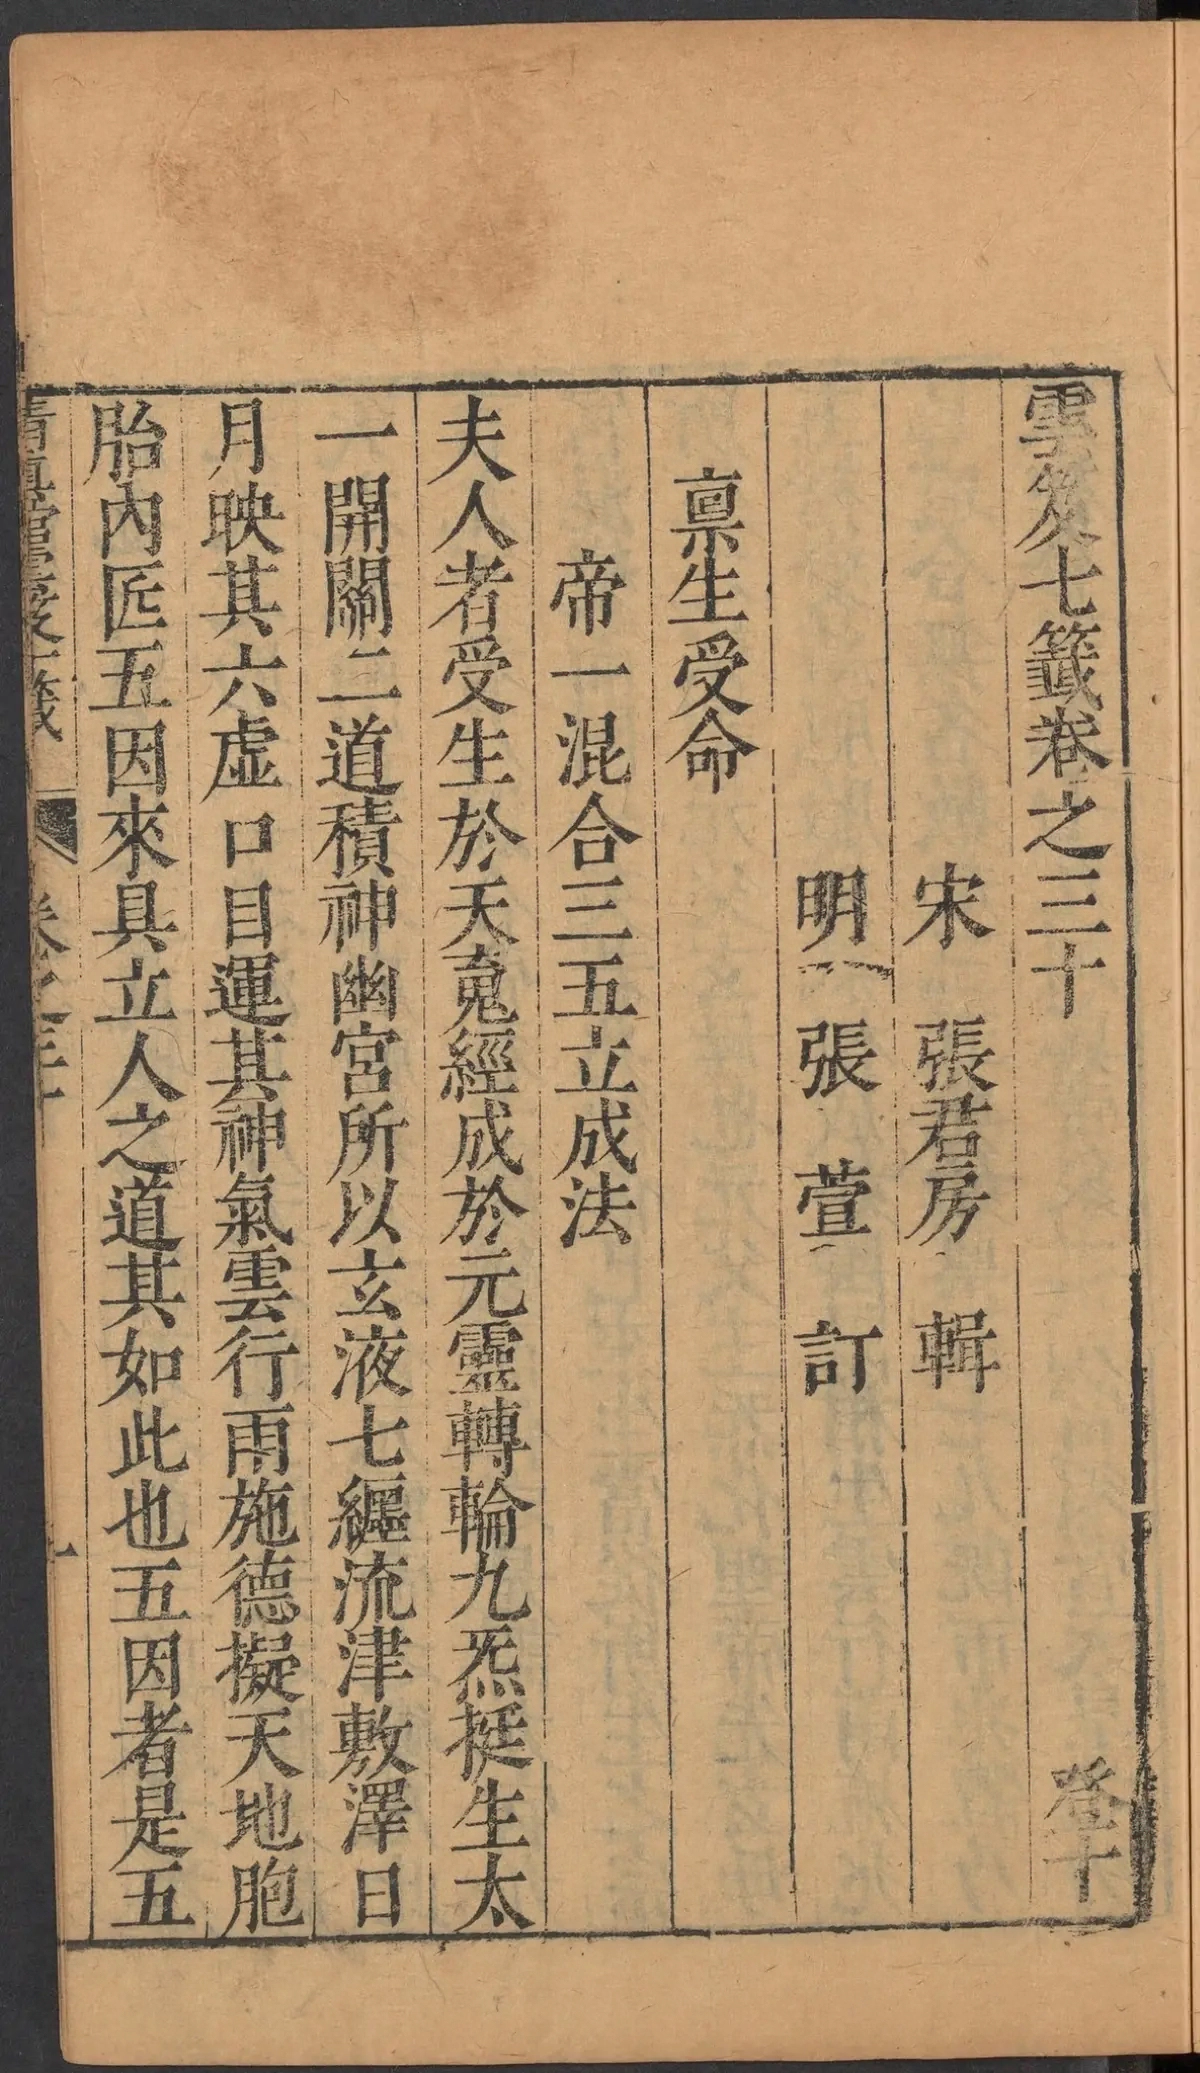 雲笈七籤卷之三十 登十
宋 張君房 輯
明 張萱 訂
禀生受命
帝一混合三五立成法
夫人者受生於天䰟經成於元靈轉輪九炁挺生太
一開關二道積神幽宮所以玄液七纒流津敷澤日
月映其六虛口目運其神氣雲行雨施德擬天地胞
胎內匠五因來具立人之道其如此也五因者是五
清真館雲笈七籤 卷之三十 一